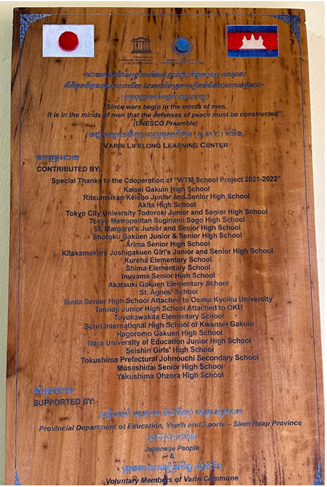 "Since wars begin in the minds of men,
It is in the minds of men that the defenses of peace must be constructed"
(UNESCO Preamble)
VARIN LIFELONG LEARNING CENTER
CONTRIBUTED BY:
Special Thanks to the Cooperation of "WTM School Project 2021-2022"
Kaisei Gakuin High School
Ritsumeikan Keisho Junior and Senior High School
Akita High School
Tokyo City University Todoroki Junior and Senior High School
Tokyo Metropolitan Suginami Sogo High School
St. Margaret's Junior and Senior High School
Shotoku Gakuen Junior & Senior High School
Arima Senior High School
Kitakamakura Joshigakuen Girl's Junior and Senior High School
Kureha Elementary School
Shima Elementary School
Inuyama Senior High School
Akatsuki Gakuen Elementary School
St. Agnes' School
Ikeda Senior High School Attached to Osaka Kyoiku University
Tennoji Junior High School Attached to OKU
Toyokawakita Elementary School
Senri International High School of Kwansei Gakuin
Hagoromo Gakuen High School
Nara University of Education Junior High School
Seishin Girls' High School
Tokushima Prefectural Johnouchi Secondary School
Musashidai Senior High School
Yakushima Ohzora High School
SUPPORTED BY:
Provincial Department of Education, Youth and Sports – Siem Reap Province
Japanese People
&
Voluntary Members of Varin Commune